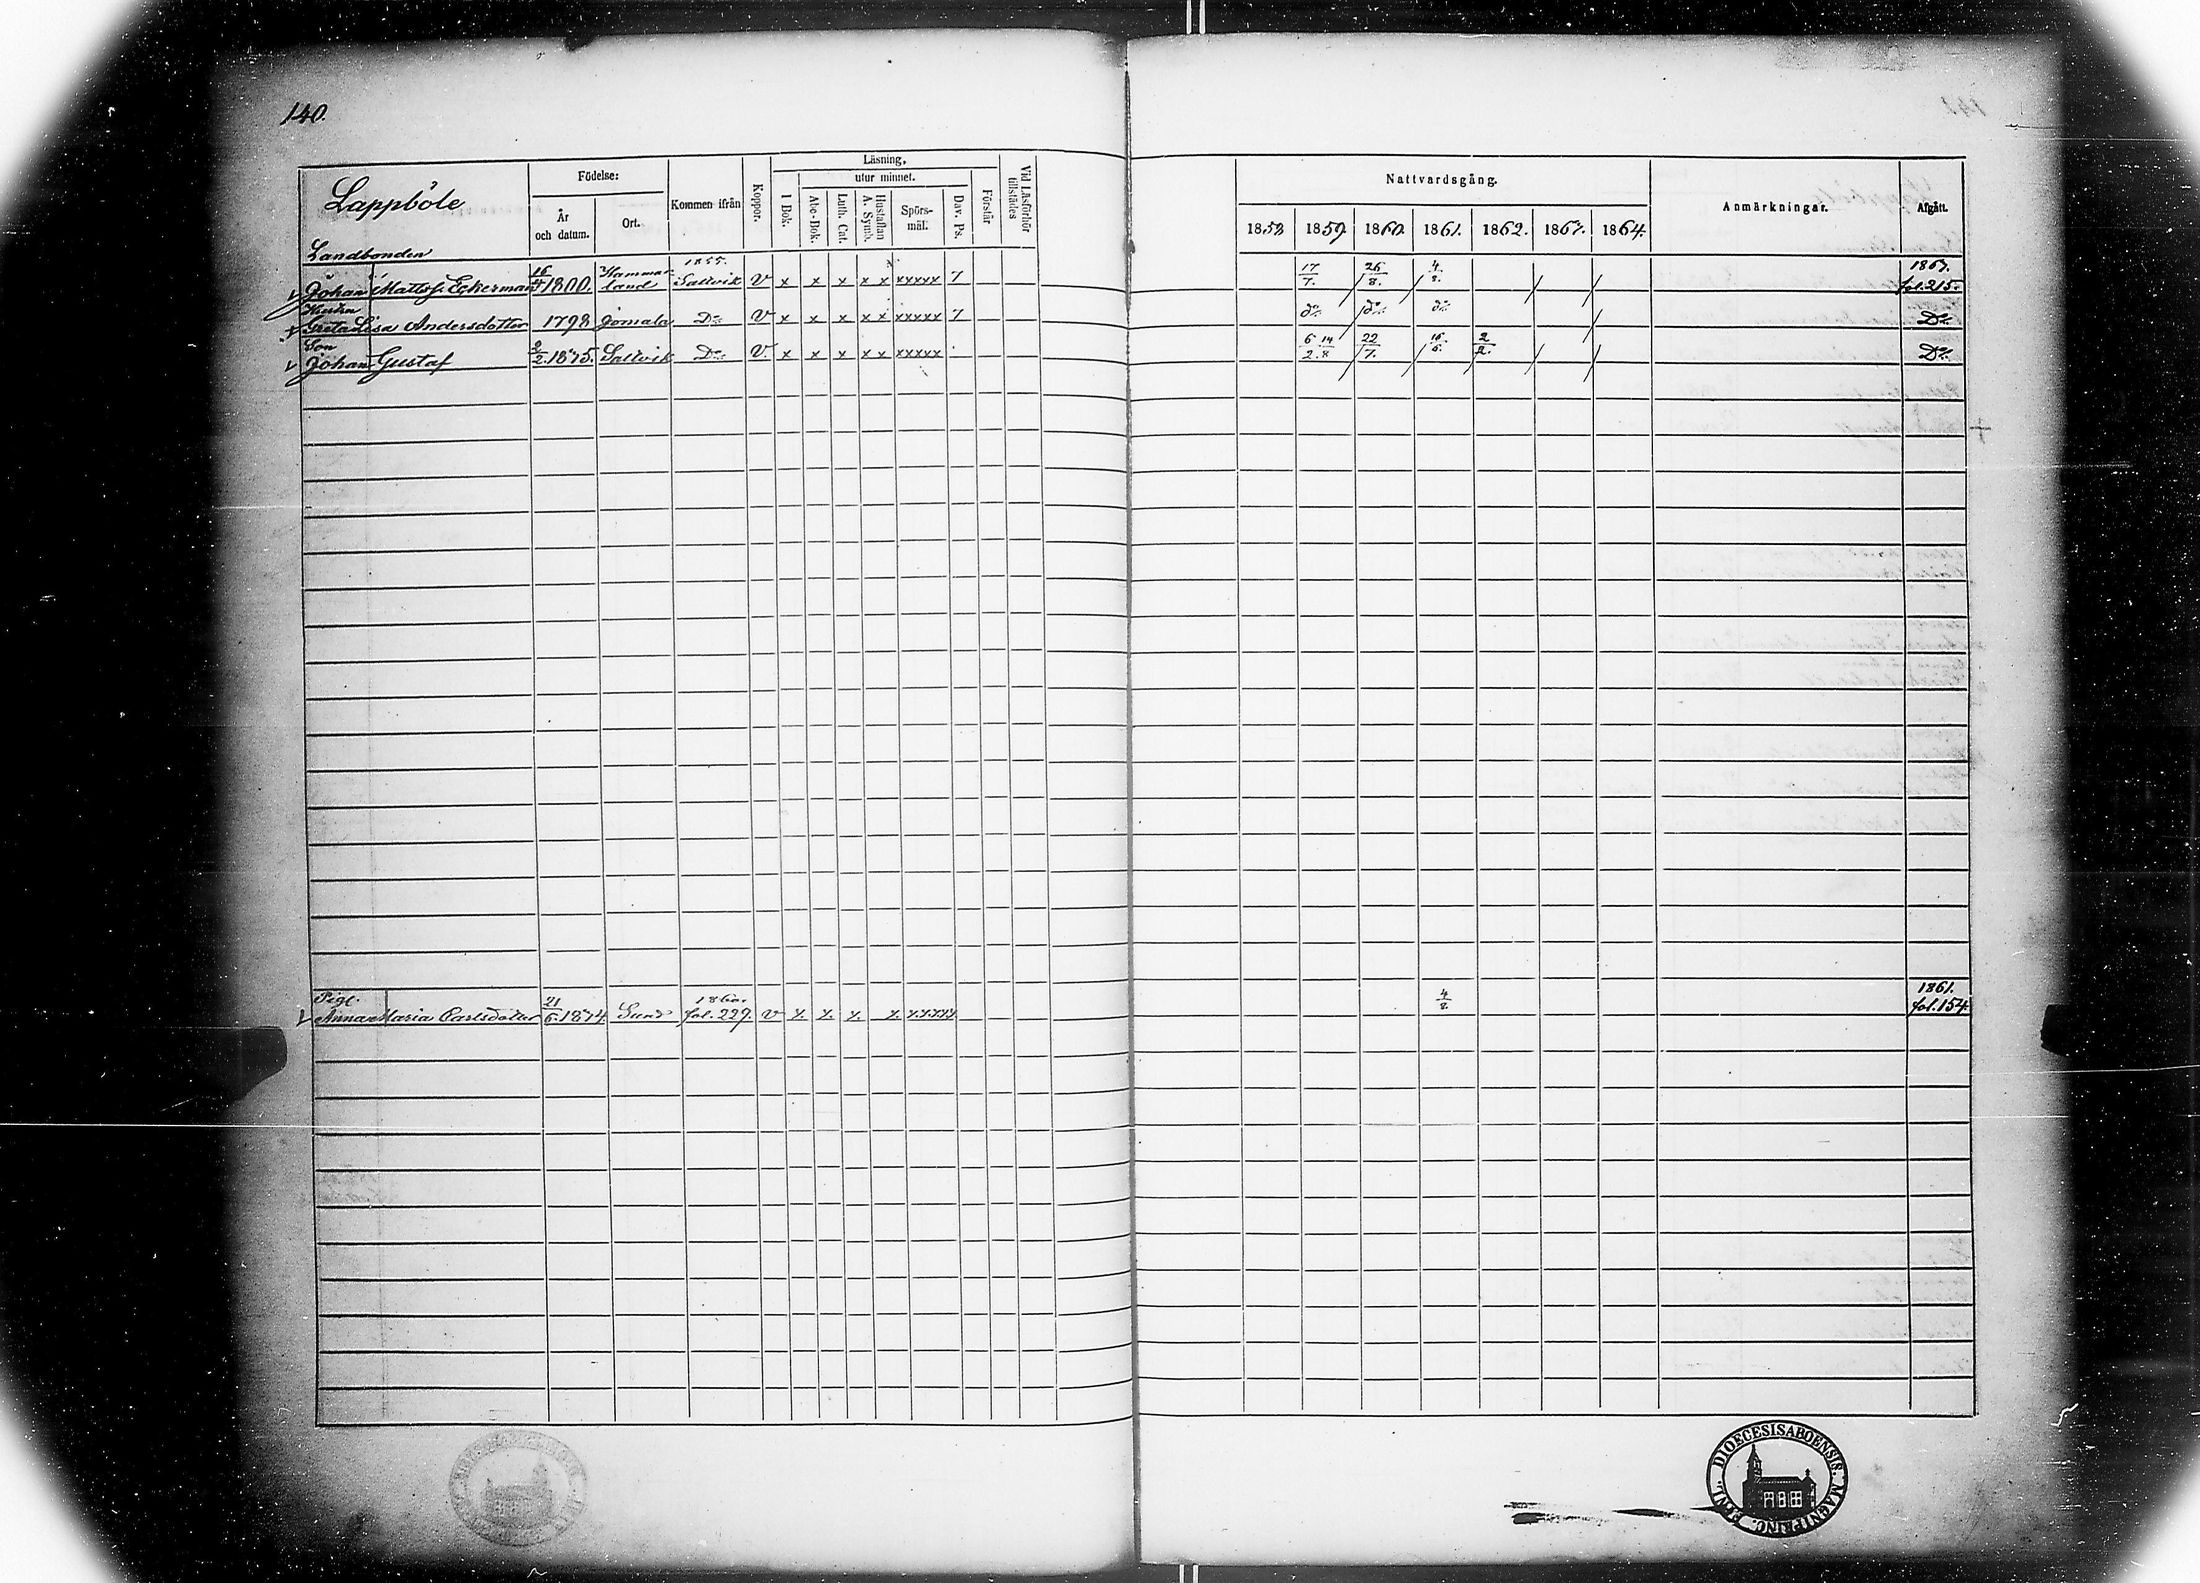 140.
Lappböle
Födelse:
År och datum.
Ort.
Kommen ifrån
Koppor.
Läsning,
utur minnet.
I Bok.
Abc-Bok.
Luth. Cat.
Hustaflan A. Symb.
Spörs-mål.
Dav. Ps.
Förstår
Vid Läsförhör tillstädes
Nattvardsgång.
1858 1859. 1860. 1861. 1862. 1863. 1864.
Anmärkningar.
Afgått.
Landbonden
Johan Mattsf. Eckerman 1800. Hammarland 1855. Saltvik V x x x x x xxxxx 7 17/7. 26/8. 4/8. 1863. fol. 215.
Hustru
Greta Lisa Andersdotter 1798 Jomala Do V x x x x x xxxxx 7 do do do Do
Son
Johan Gustaf Saltvik Do V. x x x x x xxxxx 6/2. 14/8 22/7. 16/6. 2/2. Do
Pig.
Anna Maria Carlsdotter 21/6. Sund 1860. fol. 229. V x. x. x. x. x.x.x.x.x 4/8. 1861. fol. 154.
DIOECESIS ABOENSIS. MAGNI PRINC. FENNI.